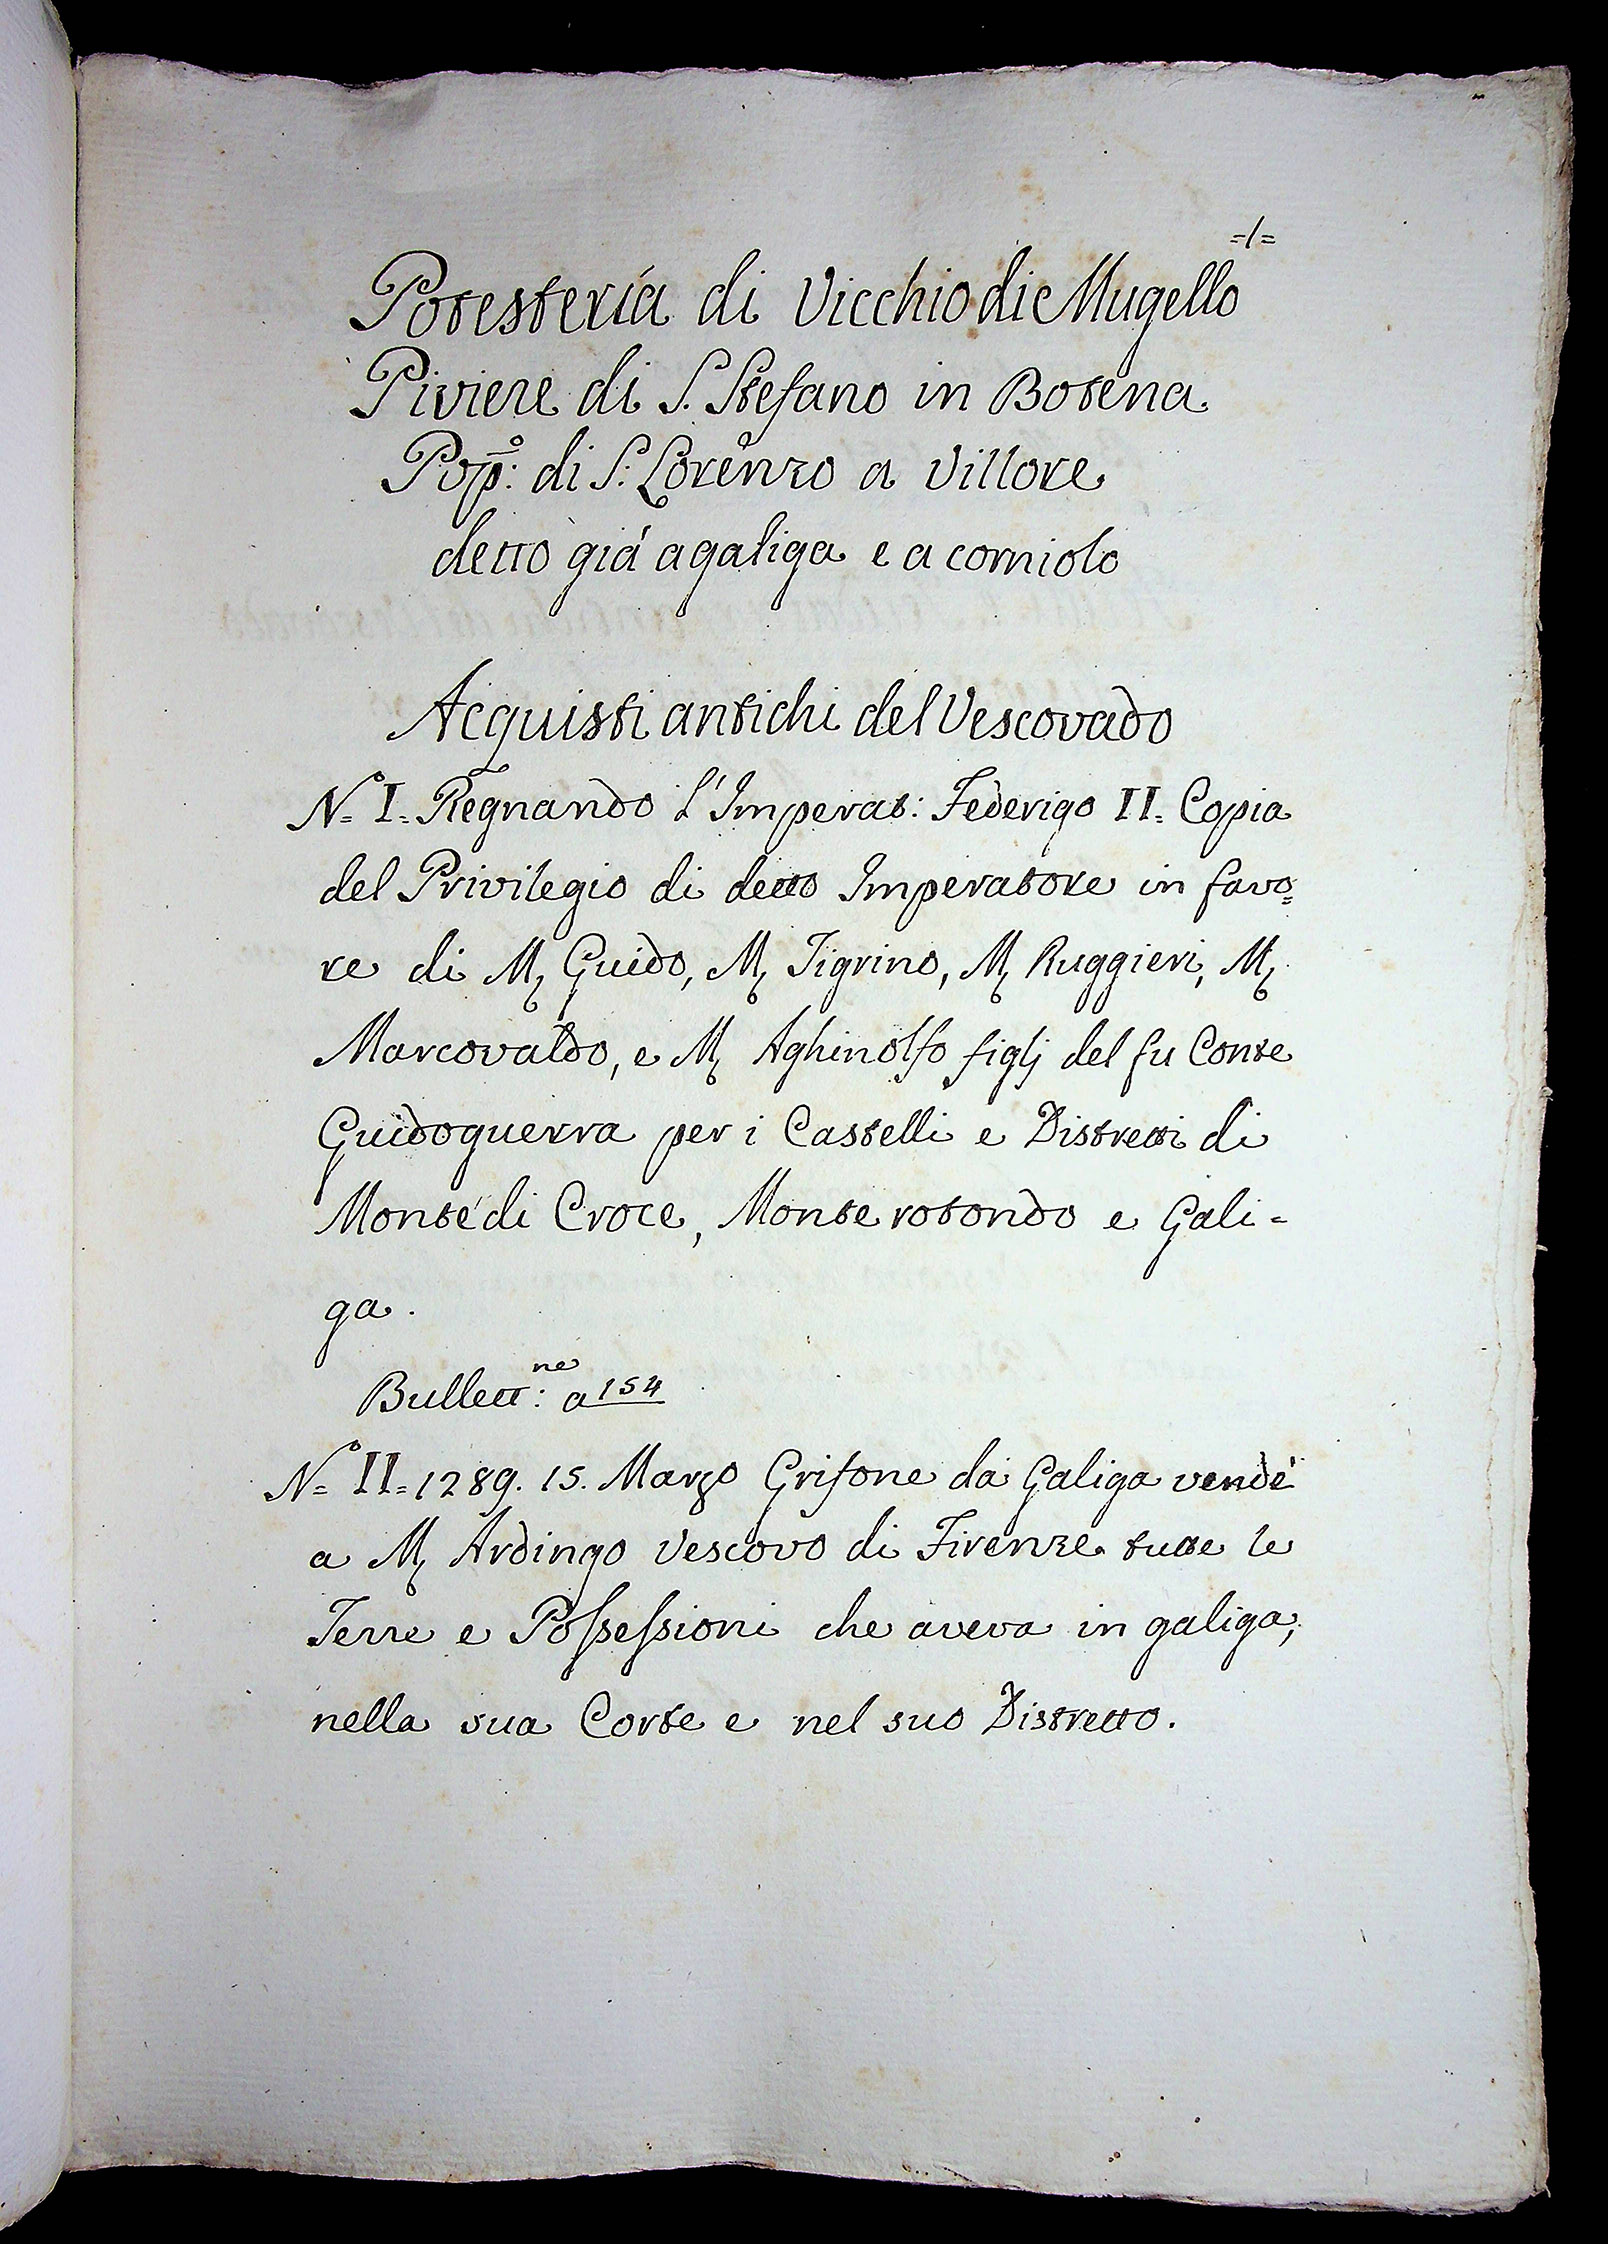 =1=
Potestería di Vicchio di Mugello
Piviere di S. Stefano in Botena
Pop̄:º di S: Lorenzo a Villore
detto giá a galiga e a corniolo
Acquisti antichi del Vescovado
Nº= I= Regnando L'Imperat: Federigo II= Copia
del Privilegio di detto Imperatore in favo=
re di M, Guido, M, Tigrino, M, Ruggieri, M,
Marcovaldo, e M, Aghinolfo figlj del fu Conte
Guidoguerra per i Castelli e Distretti di
Monte di Croce, Monte rotondo e Gali=
ga.
Bullett:ne a 154
Nº= II= 1289. 15. Marzo Grifone da Galiga vendè
a M, Ardingo Vescovo di Firenze tutte le
Terre e Poſseſsioni che aveva in galiga,
nella sua Corte e nel suo Distretto.